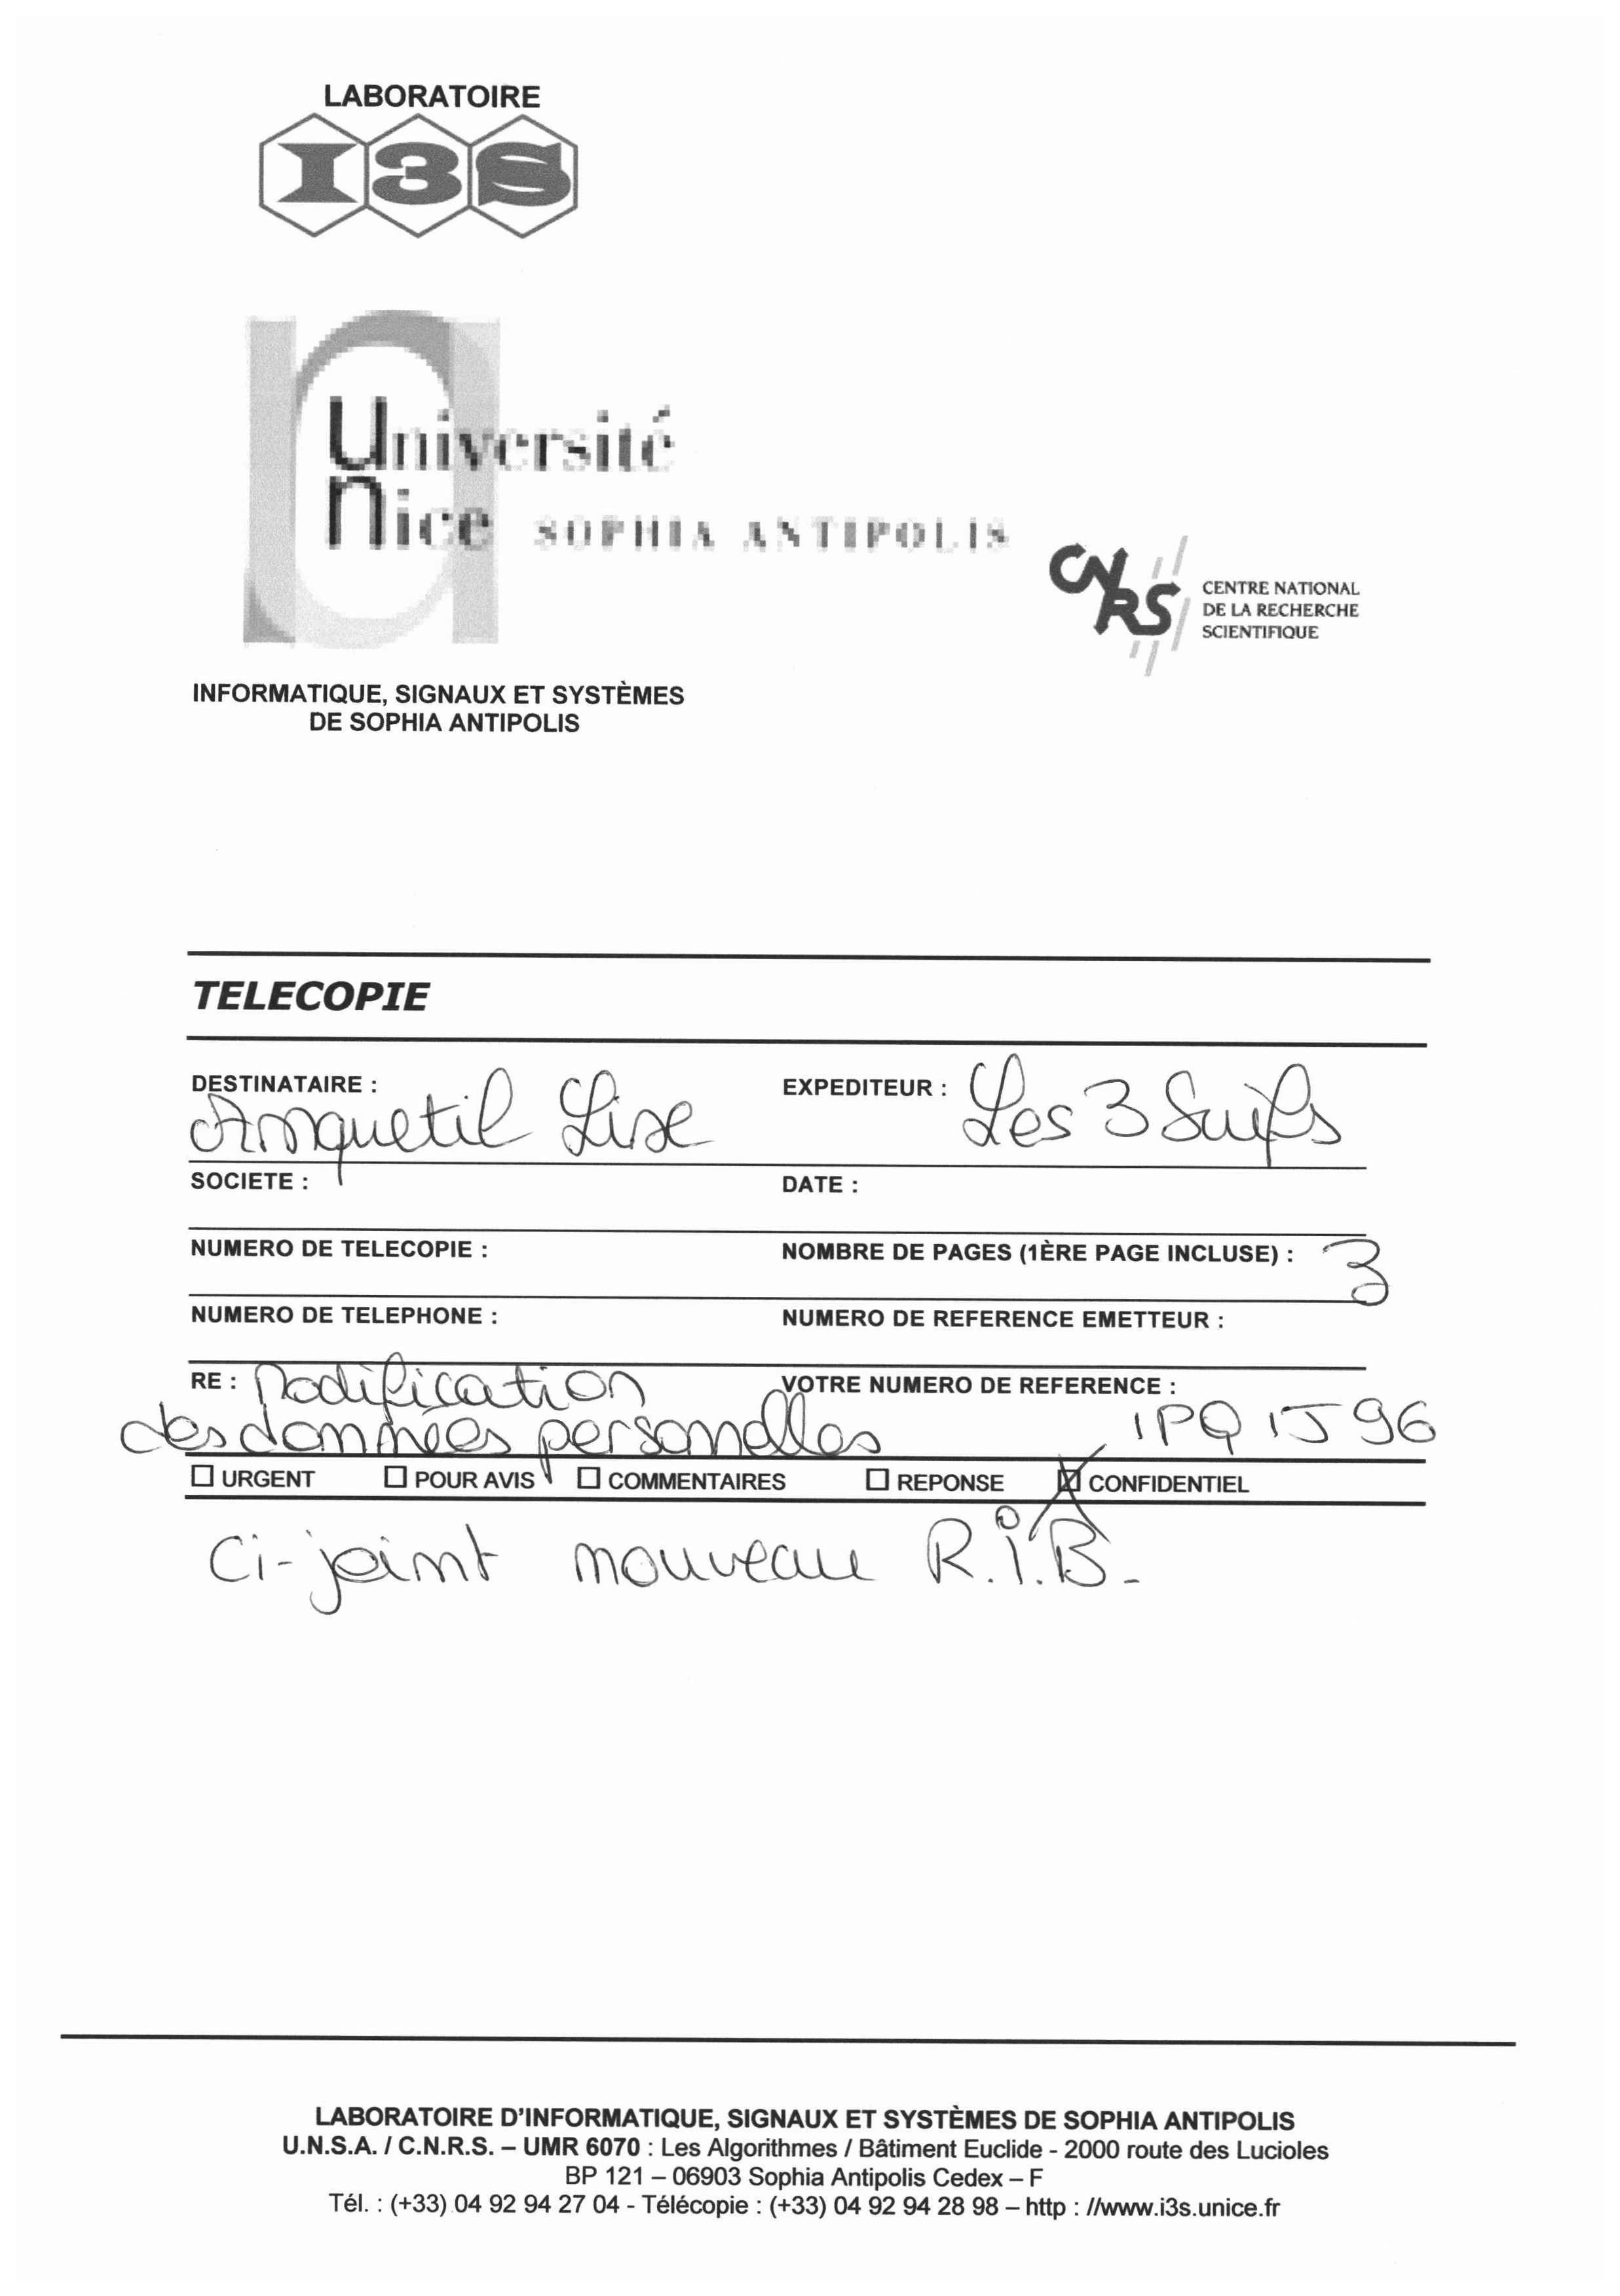 LABORATOIRE
I3S
Université
Nice SOPHIA ANTIPOLIS
CNRS
CENTRE NATIONAL
DE LA RECHERCHE
SCIENTIFIQUE
INFORMATIQUE, SIGNAUX ET SYSTÈMES
DE SOPHIA ANTIPOLIS
TELECOPIE
DESTINATAIRE : Anquetil Lise
EXPEDITEUR : Les 3 Suifs
SOCIETE :
DATE :
NUMERO DE TELECOPIE :
NOMBRE DE PAGES (1ÈRE PAGE INCLUSE) : 3
NUMERO DE TELEPHONE :
NUMERO DE REFERENCE EMETTEUR :
RE : Modification
des données personelles
VOTRE NUMERO DE REFERENCE :
1PQ1J96
URGENT POUR AVIS COMMENTAIRES REPONSE CONFIDENTIEL
Ci-joint nouveau R.i.B.
LABORATOIRE D'INFORMATIQUE, SIGNAUX ET SYSTÈMES DE SOPHIA ANTIPOLIS
U.N.S.A. / C.N.R.S. – UMR 6070 : Les Algorithmes / Bâtiment Euclide - 2000 route des Lucioles
BP 121 – 06903 Sophia Antipolis Cedex – F
Tél. : (+33) 04 92 94 27 04 - Télécopie : (+33) 04 92 94 28 98 – http : //www.i3s.unice.fr